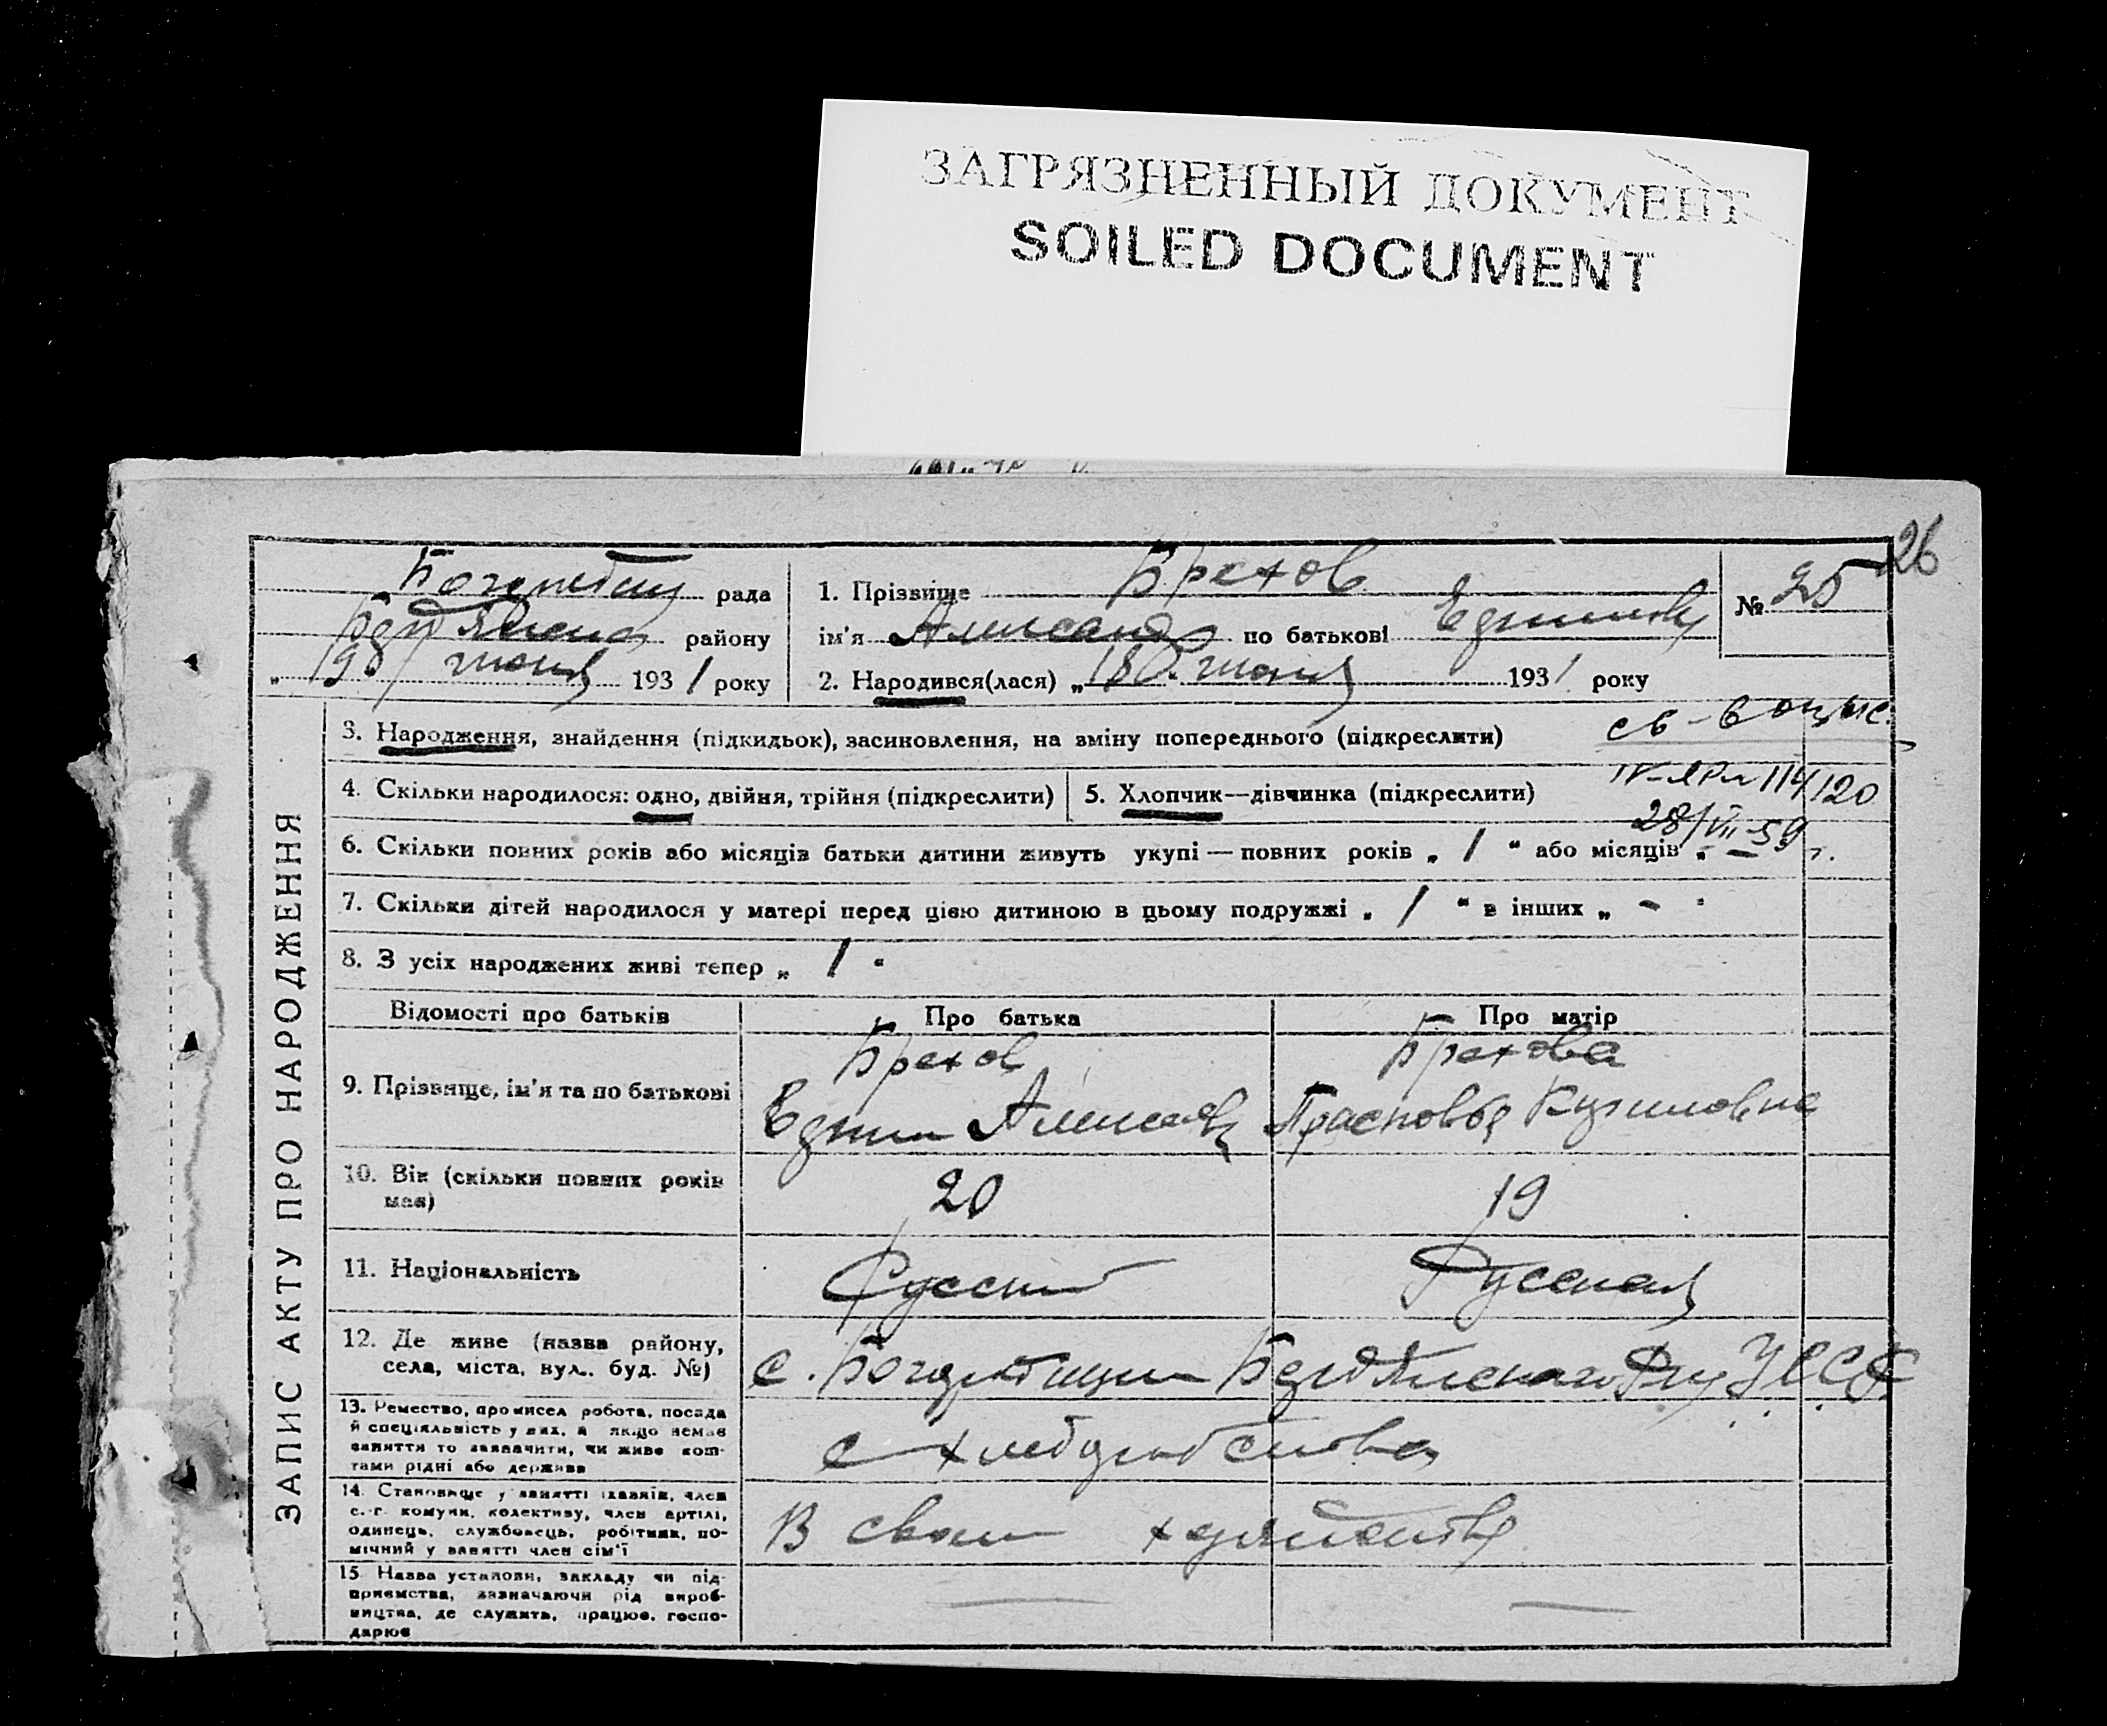 ЗАГРЯЗНЕННЫЙ ДОКУМЕНТ
SOILED DOCUMENT
26
рада
району
193 1 року
1. Прізвище Брехов
ім'я Александр по батькові
2. Народився(лася) „18 июня 1931 року
№ 25
ЗАПИС АКТУ ПРО НАРОДЖЕННЯ
3. Народження, знайдення (підкидьок), засиновлення, на зміну попереднього (підкреслити)
св-во выпис.
4. Скільки народилося: одно, двійня, трійня (підкреслити)
5. Хлопчик—дівчинка (підкреслити)
114120
28/VII-59 г.
6. Скільки повних років або місяців батьки дитини живуть укупі — повних років „ 1 “ або місяців „ –
7. Скільки дітей народилося у матері перед цією дитиною в цьому подружжі „ 1 “ в інших „ – “
8. З усіх народжених живі тепер „ 1 “
Відомості про батьків
Про батька
Про матір
9. Прізвище, ім'я та по батькові
Брехов
Брехова
Прасковья Кузиловна
10. Вік (скільки повних років
має)
20
19
11. Національність
Русский
Русская
12. Де живе (назва району,
села, міста, вул. буд. №)
с. УССР
13. Ремество, промисел робота, посада
й спеціяльність у них, а якщо немає
заняття то зазначити, чи живе кош-
тами рідні або держави
с хлебопашества
14. Становище у занятті хазяїн, член
с.-г. комуни, колективу, член артілі,
одинець, службовець, робітник, по-
мічний у занятті член сім'ї
В своем хозяйстве
15. Назва установи, закладу чи під-
приємства, зазначаючи рід вироб-
ництва, де служить, працює, госпо-
дарює